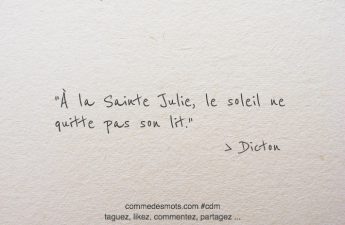 "À la Sainte Julie, le soleil ne
quitte pas son lit."
> Dicton
commedesmots.com #cdm
taguez, likez, commentez, partagez ...